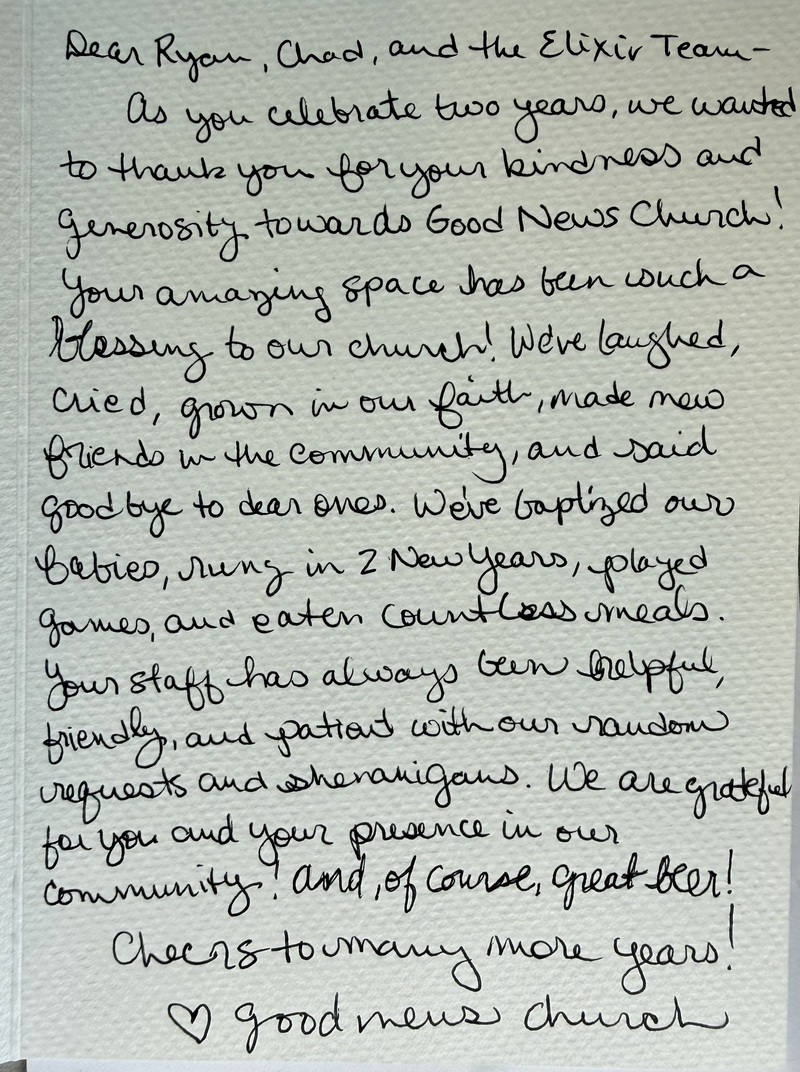 Dear Ryan, Chad, and the Elixir Team-
As you celebrate two years, we wanted
to thank you for your kindness and
generosity towards Good News Church!
Your amazing space has been such a
blessing to our church! We've laughed,
cried, grown in our faith, made new
friends in the community, and said
goodbye to dear ones. We've baptized our
babies, rung in 2 New Years, played
games, and eaten countless meals.
Your staff has always been helpful,
friendly, and patient with our random
requests and shenanigans. We are grateful
for you and your presence in our
community! And, of course, great beer!
Cheers to many more years!
♡ good news church